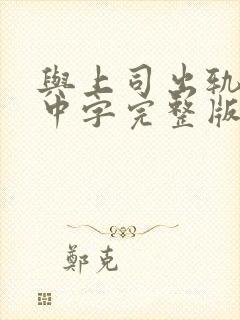 與上司出軌
中字完整版
鄭克